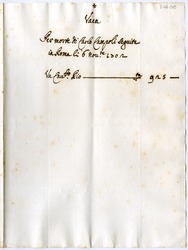 Vaca
Per morte di Carlo Campoli seguita
in Roma li 6 nov.re 1702
Un Cavl.to Pio 925